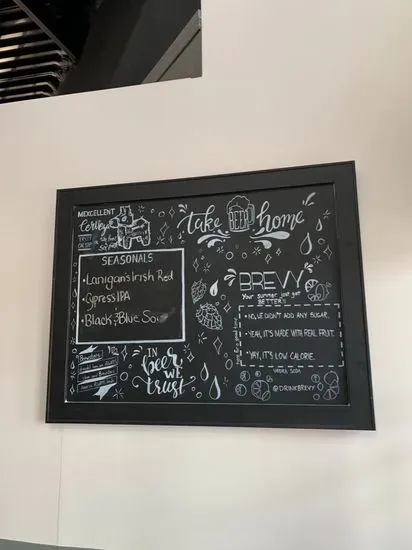 MEXCELLENT
take BEER home
SEASONALS
• Lanigan's Irish Red
• Cypress IPA
• Black & Blue Sour
BREVY
Your summer just got
BETTER!!
• NO, WE DIDN'T ADD ANY SUGAR.
• YEAH, IT'S MADE WITH REAL FRUIT.
• YAY, IT'S LOW CALORIE.
@DRINKBREVY
IN
beer
WE
trust